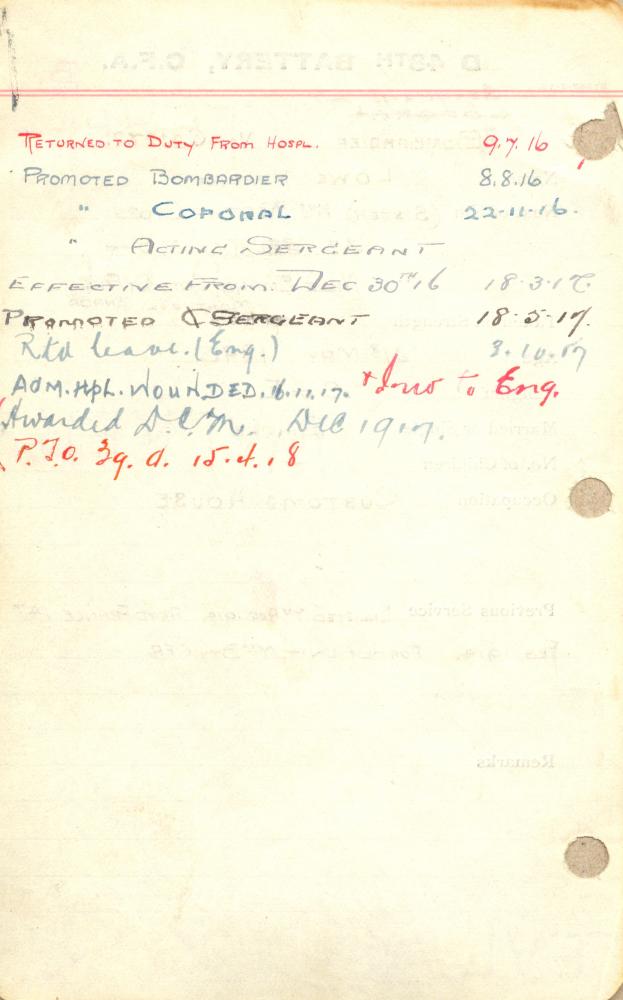 RETURNED TO DUTY FROM HOSPL. 9.7.16
PROMOTED BOMBARDIER 8.8.16
" COPORAL 22-11-16.
" ACTING SERGEANT
EFFECTIVE FROM. DEC 30TH 16 18-3-17.
PROMOTED SERGEANT 18-5-17.
Rtd leave. (Eng.) 3.10.17
ADM. HPL. WOUNDED. 16.11.17. to Eng.
Awarded D.C.M. DEC 1917.
15.4.18